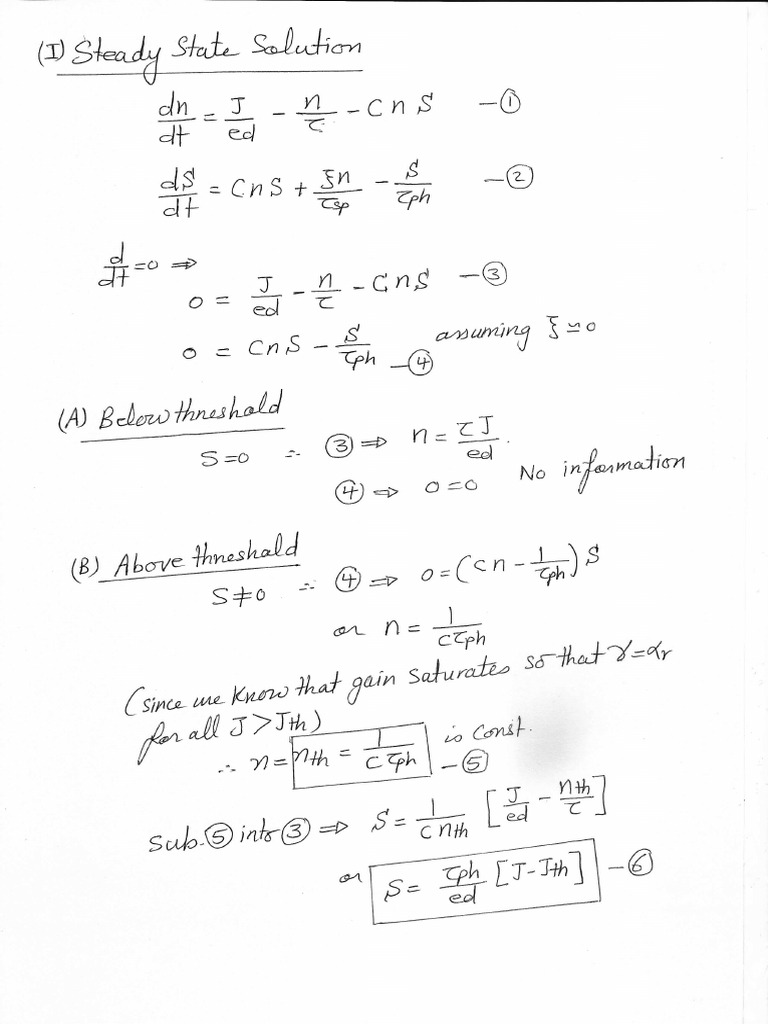 (I) Steady State Solution
dn/dt = J/ed - n/τ - CnS —①
dS/dt = CnS + ξn/τsp - S/τph —②
d/dt = 0 ⇒
0 = J/ed - n/τ - CnS —③
0 = CnS - S/τph —④ assuming ξ ≃ 0
(A) Below threshold
S=0 ∴ ③ ⇒ n = τJ/ed.
④ ⇒ 0=0 No information
(B) Above threshold
S≠0 ∴ ④ ⇒ 0 = (cn - 1/τph) S
or n = 1/cτph
(since we know that gain saturates so that γ=αr
for all J > Jth)
∴ n = nth = 1/cτph is const. —⑤
Sub. ⑤ into ③ ⇒ S = 1/c nth [J/ed - nth/τ]
or S = τph/ed [J-Jth] —⑥